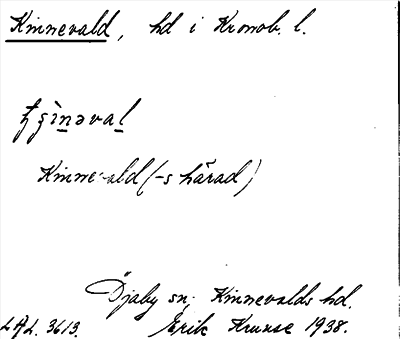 Kinnevald, hd i Kronob. l.
ꞎʂìnəval
Kinnevald (-s härad)
Öjaby sn; Kinnevalds hd.
LAL. 3613. Erik Kruuse 1938.